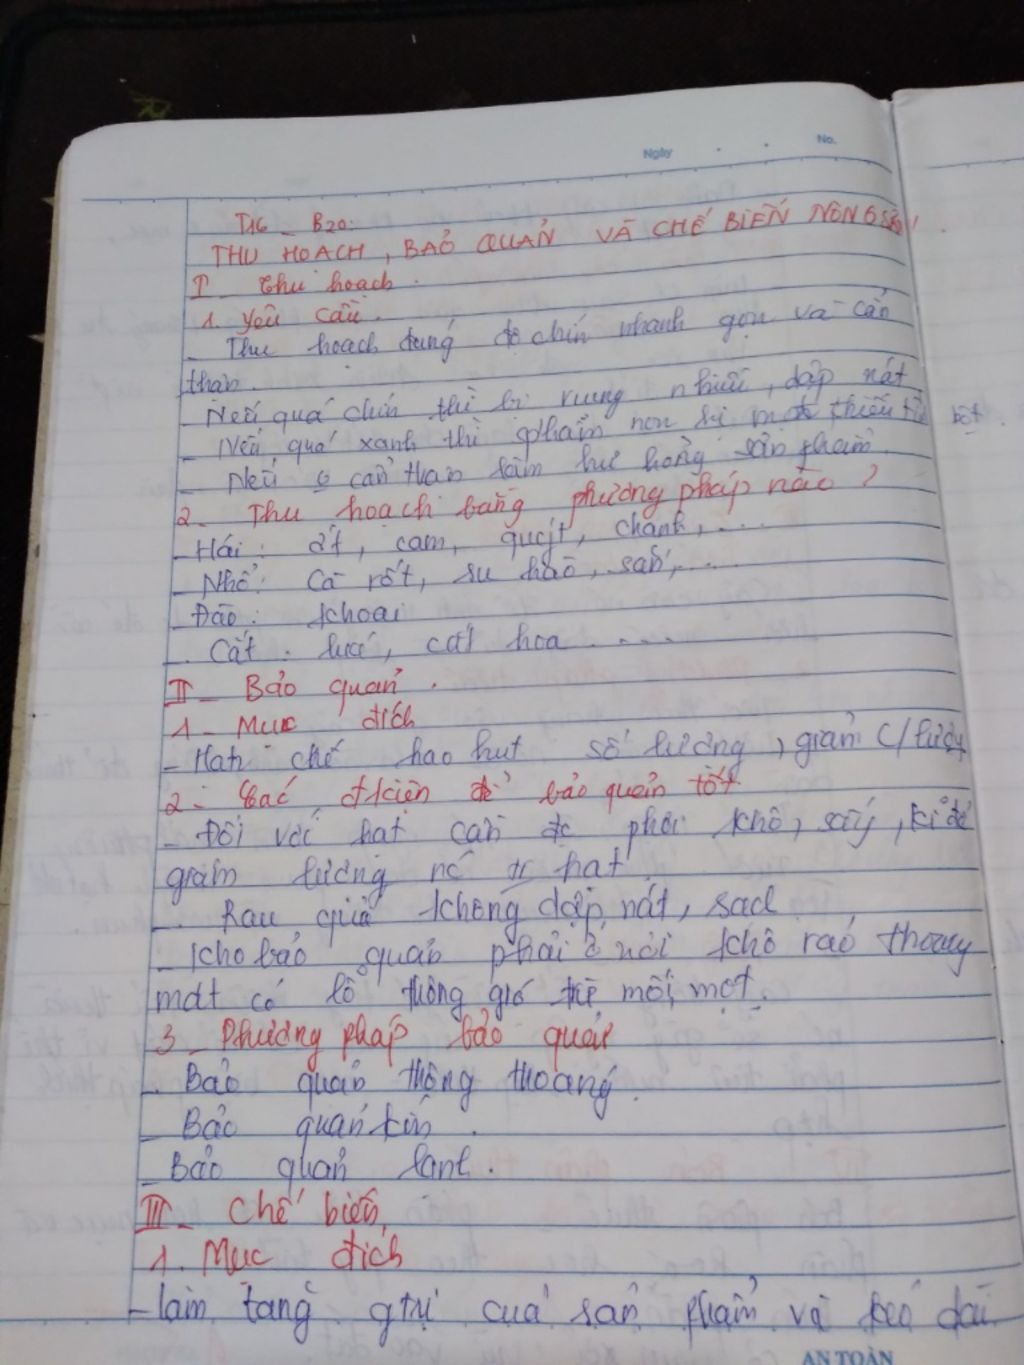 Ngày No.
T16 - B20:
THU HOẠCH, BẢO QUẢN VÀ CHẾ BIẾN NÔNG SẢN
I - Thu hoạch.
1. Yêu cầu.
- Thu hoạch đúng độ chín nhanh gọn và cẩn
thận.
- Nếu quá chín thì bị rụng nhiều, dập nát
- Nếu quá xanh thì phẩm non
- Nếu o cẩn thận làm hư hỏng sản phẩm.
2. Thu hoạch bằng phương pháp nào?
- Hái: ớt, cam, quýt, chanh, ....
- Nhổ: Cà rốt, su hào, sắn, ....
- Đào: khoai
- Cắt: lúa, cắt hoa ....
II - Bảo quản.
1 - Mục đích
- Hạn chế hao hụt số lượng, giảm c/lượng
2 - Các đ/kiện để bảo quản tốt
- Đối với hạt cần đc phơi khô, sấy, kĩ để
giảm lượng nc hạt
- Rau quả không dập nát, sạch
- Kho bảo quản phải ở nơi khô ráo thoáng
mát có lỗ thông gió trừ mối, mọt.
3 - Phương pháp bảo quản
- Bảo quản thông thoáng.
- Bảo quản kín.
- Bảo quản lạnh.
III - Chế biến
1. Mục đích
- làm tăng gtrị của sản phẩm và kéo dài
AN TOÀN